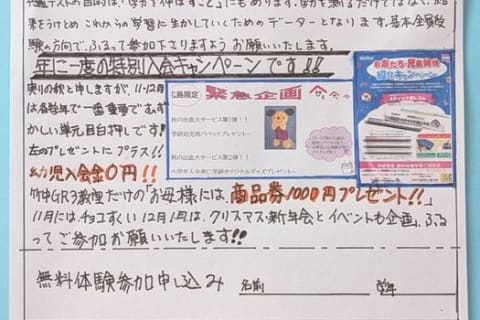 テストの目的は、「学力を伸ばすこと」にもあります。学力を測るだけではなく、結
果をうけとめ これからの学習に生かしていくためのデーターとなります。基本 全員受
験の方向で、ふるって参加下さりますよう お願いいたします。
年に一度の特別入会キャンペーンです!!
実りの秋と申しますが、11・12月
は各学年で一番重要です。む
かしい単元 目白押しです!
左のプレゼントに プラス!!
幼児入会金0円!!
広島限定 緊急企画
秋の出血大サービス第1弾!!
学研幼児用パペットプレゼント…
秋の出血大サービス第2弾!!
小学生入会者に学研オリジナルグッズプレゼント…
お友だち・兄弟姉妹
紹介キャンペーン
教室だけの「お母様には、商品券1000円プレゼント!!
11月には、チョコすくい 12月1月は、クリスマス・新年会とイベントも企画、ふる
ってご参加お願いいたします!!
無料体験参加申し込み 名前 学年